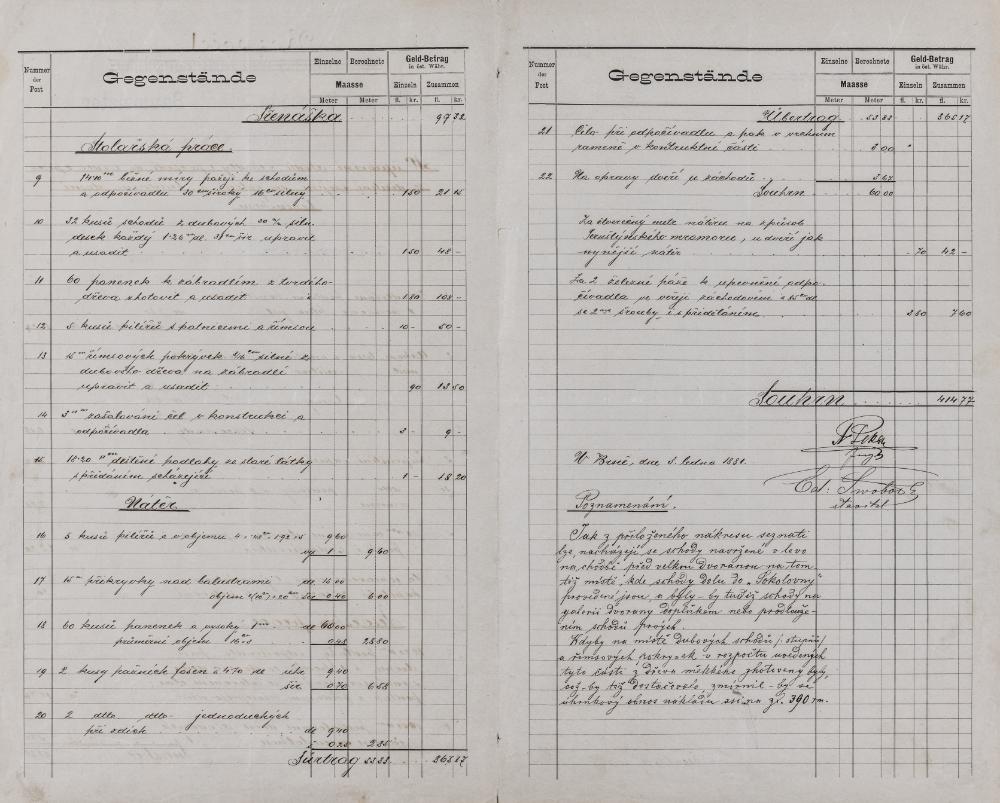 Nummer der Post
Gegenstände
Einzelne Berechnete
Maasse
Meter Meter
Geld-Betrag
in öst. Währ.
Einzeln Zusammen
fl. kr. fl. kr.
99 32
Stolařská práce.
9 běžné míry pažejí ke schodům
a odpočívadlu 30 cm široký silný 1 50 21
10 32 kusů schodů z dubových siln.
desek každý upravit
a usadit 1 50 48 -
11 60 panenek k zábradlím z tvrdého
dřeva zhotovit a usadit 1 80 108 -
12 5 kusů pilířů s palnicemi a římsou 10 - 50 -
13 15 m římsových pokrývek silné z
dubového dřeva na zábradlí
upravit a usadit 90 13 50
14 3 zašalování čel v konstrukci a
odpočívadla 3 - 9 -
15 podlahy ze staré látky
s přidáním scházející 1 - 18 20
Nátěr.
16 5 kusů pilířů o objemu 9 60
1 - 9 60
17 15 m překryvky nad balustrami de. 15 00
objem 0 40 6 00
18 60 kusů panenek a vysoký 1 de 60 00
průměrní objem 0 48 28 80
19 2 kusy fošen á 470 de 9 40
šír. 0 70 6 58
20 2 dto dto jednoduchých
při zdích de 9 40
0 25 2 35
Fürtrag 53 33 365 17
Nummer der Post
Gegenstände
Einzelne Berechnete
Maasse
Meter Meter
Geld-Betrag
in öst. Währ.
Einzeln Zusammen
fl. kr. fl. kr.
Übertrag 53 33 365 17
21 Čelo při odpočívadlu a pak v vrchním
rameně v kontruktné části 3 00
22 Na opravy dveří u záchodů 3 67
Souhrn 60 00
Za čtverečný metr nátěru na způsob
mramoru, u dveří jak
nynější nátěr 70 42 -
Za 2 železné páže k upevnění odpo-
čívadla ve věřeji záchodovém
se 2 šrouby i s přiděláním 3 80 7 60
Souhrn 414 77
V Brně, dne 5. ledna 1881.
stavitel
Poznamenání.
Jak z přiloženého nákresu seznati
lze, nacházejí se schody navržené v levo
na chodbě před velkou dvoranou na tom-
též místě, kde schody dolů do „Sokolovny"
provedené jsou, a byly-by tudíž schody na
galerii dvorany doplňkem nebo prodlouže-
ním schodů prvých.
Kdyby na místě dubových schodů /stupňů/
a římsových pokryvek v rozpočtu uvedených
tyto části z dřeva měkkého zhotoveny byly,
což-by též dostačovalo, zmírnil-by se
úhrnkový obnos nákladu asi na zl. 390 rm.